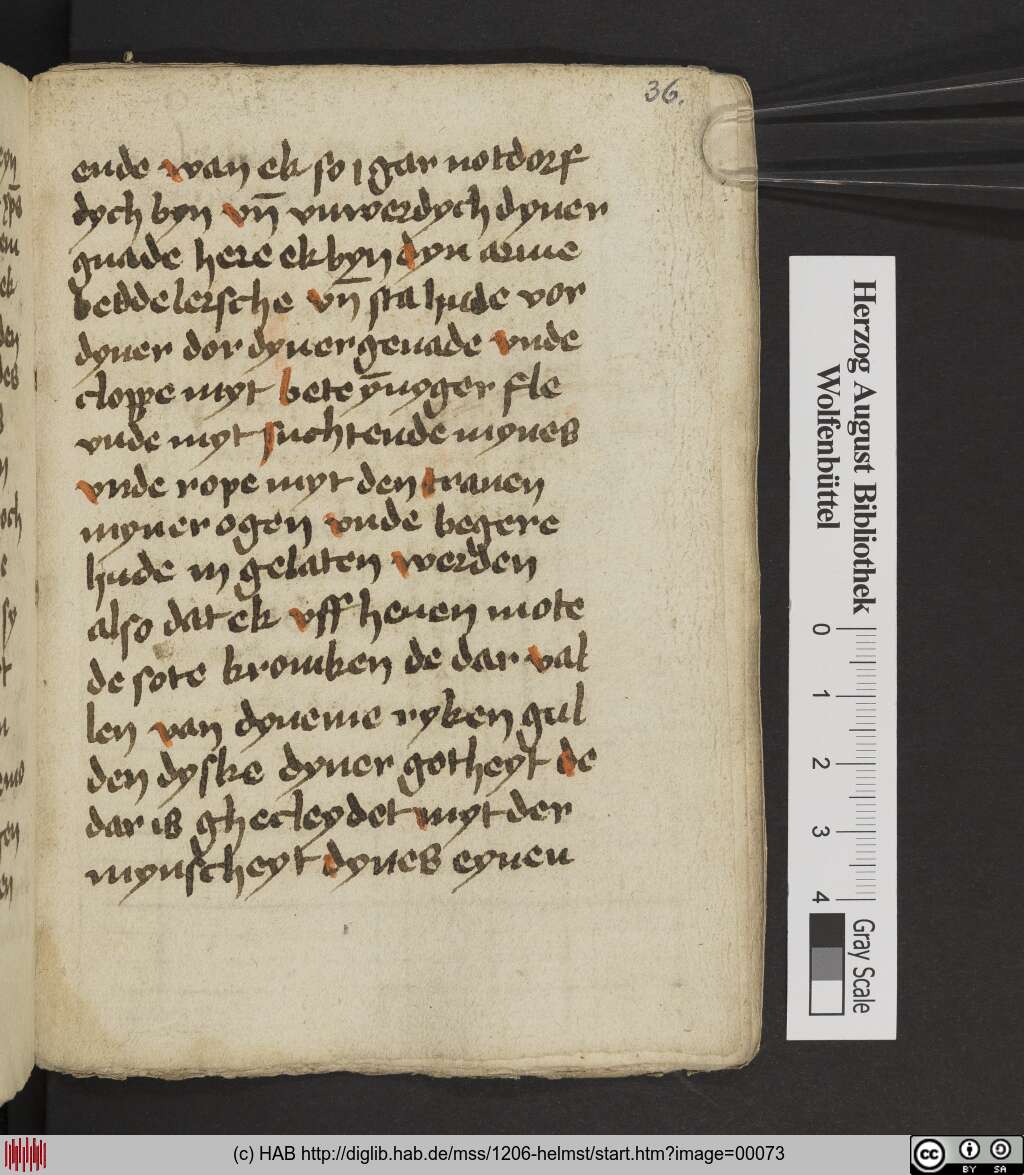 36.
ende wan ek so gar notdorf
dych byn vn̄ vnwerdych dyner
gnade here ek byn dyn arme
beddelersche vn̄ sta hude vor
dyner dor dyner genade vnde
cloppe myt bete ȳnyger fle
vnde myt suchtende mynes
vnde rope myt den tranen
myner ogen vnde begere
hude in gelaten werden
also dat ek vff heuen mote
de sote kromken de dar val
len van dyneme ryken gul
den dyske dyner gotheyt de
dar is ghecleydet myt der
mynscheyt dynes eynen
Herzog August Bibliothek
Wolfenbüttel
0 1 2 3 4
Gray Scale
(c) HAB http://diglib.hab.de/mss/1206-helmst/start.htm?image=00073
cc BY SA